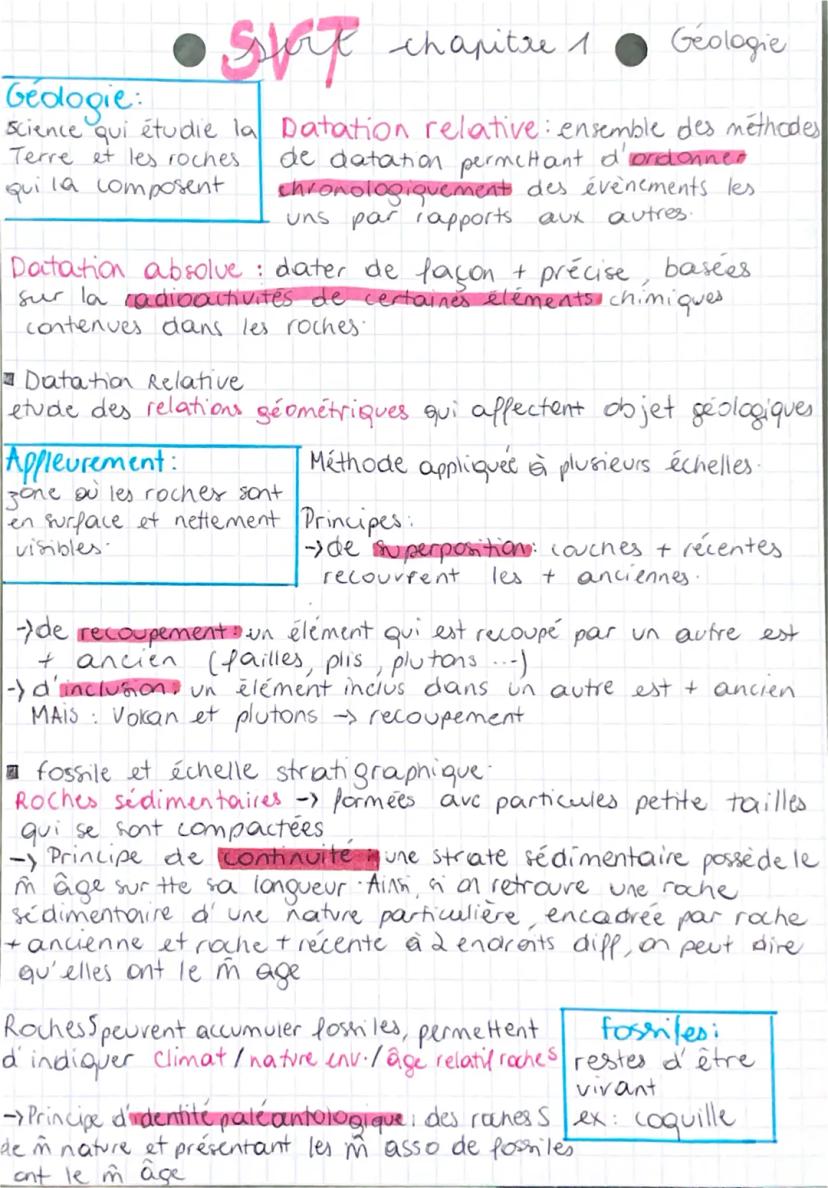 SVT chapitre 1 Géologie
Géologie:
science qui étudie la
Terre et les roches
qui la composent
Datation relative: ensemble des méthodes
de datation permettant d'ordonner
chronologiquement des évènements les
uns par rapports aux autres.
Datation absolue : dater de façon + précise, basées
sur la radioactivités de certaines éléments chimiques
contenues dans les roches.
Datation Relative
etude des relations géométriques qui affectent objet géologiques
Affleurement:
zone où les roches sont
en surface et nettement
visibles.
Méthode appliquée à plusieurs échelles.
Principes:
-> de superposition: couches + récentes
recouvrent les + anciennes.
-> de recoupement: un élément qui est recoupé par un autre est
+ ancien (failles, plis, plutons ...)
-> d'inclusion: un élément inclus dans un autre est + ancien
MAIS : Volcan et plutons -> recoupement
fossile et échelle stratigraphique.
Roches sédimentaires -> formées avc particules petite tailles
qui se sont compactées
-> Principe de continuité : une strate sédimentaire possède le
m̂ âge sur tte sa longueur. Ainsi, si on retrouve une roche
sédimentaire d'une nature particulière, encadrée par roche
+ ancienne et roche + récente à 2 endroits diff, on peut dire
qu'elles ont le m̂ age
Roches S peuvent accumuler fossiles, permettent
d'indiquer climat / nature env. / âge relatif roches
fossiles:
restes d'être
vivant
ex: coquille
-> Principe d'identité paléantologique: des roches S
de m̂ nature et présentant les m̂ asso de fossiles
ont le m̂ âge